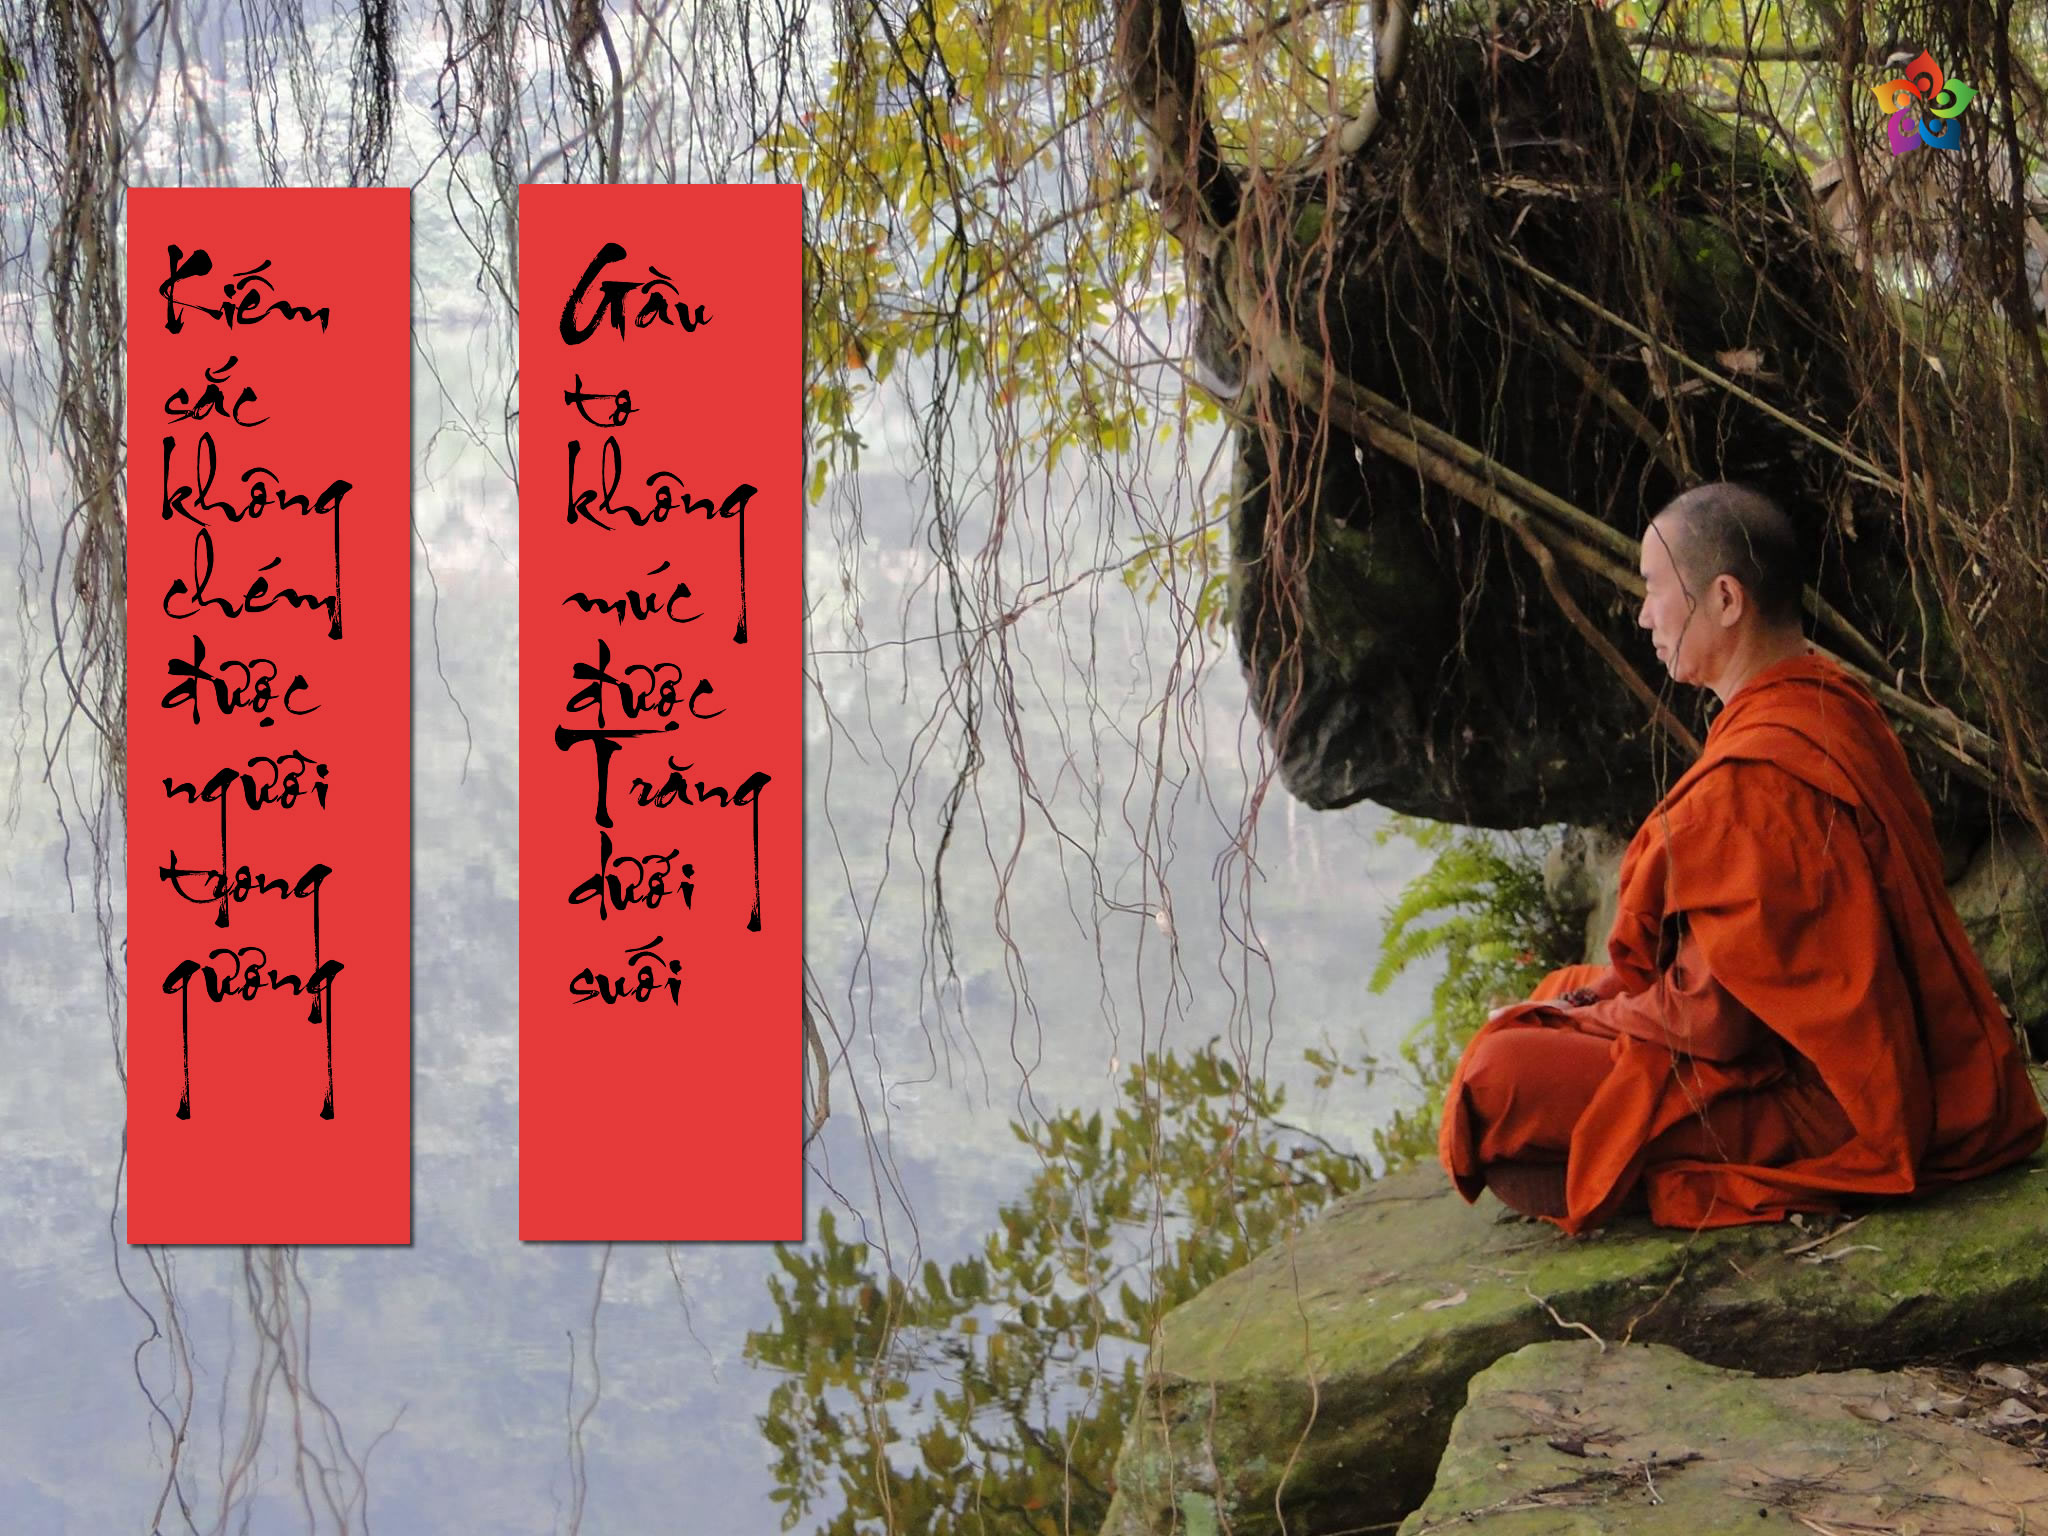 Kiếm
sắc
không
chém
được
người
trong
gương
Gầu
to
không
múc
được
Trăng
dưới
suối